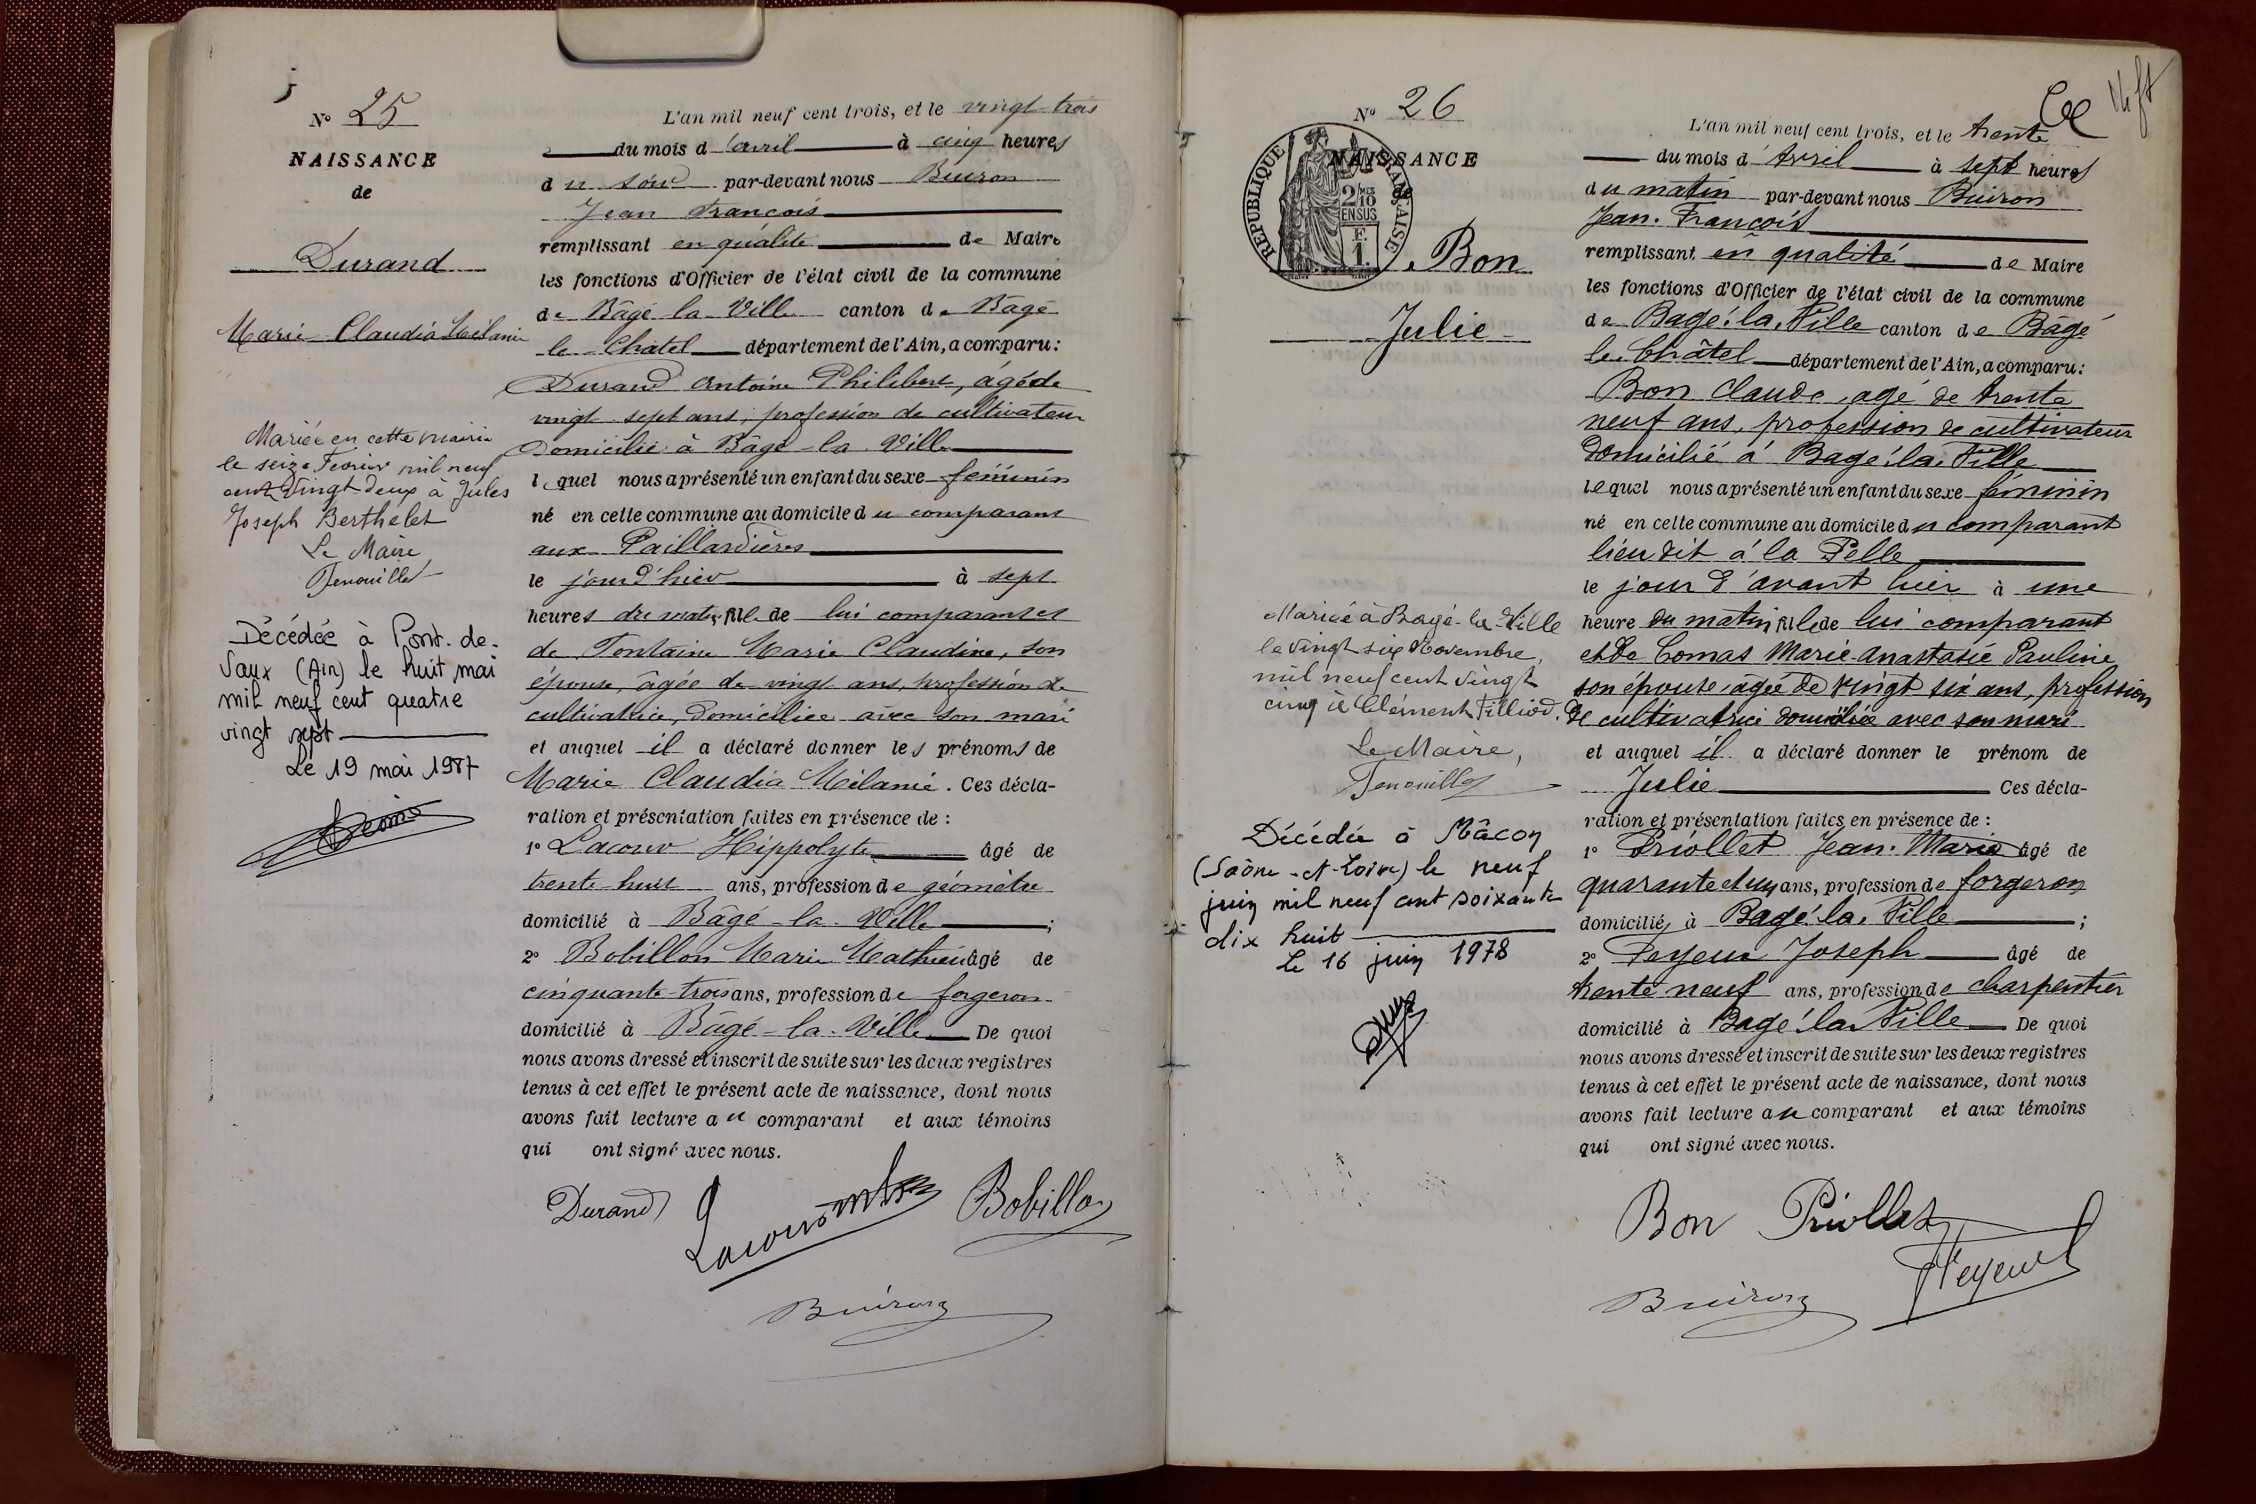 N° 25
NAISSANCE
de
Durand
Marie Claudia Mélanie
Mariée en cette mairie
le seize Février mil neuf
cent vingt deux à Jules
Joseph Berthelet
Le Maire
Fenouillet
Décédée à Pont-de-
Vaux (Ain) le huit mai
mil neuf cent quatre
vingt sept
Le 19 mai 1987
L'an mil neuf cent trois, et le vingt-trois
du mois d'avril à cinq heures
du soir par-devant nous Buiron
Jean François
remplissant en qualité de Maire
les fonctions d'Officier de l'état civil de la commune
de Bâgé la Ville canton de Bâgé
le Châtel département de l'Ain, a comparu:
Durand Antoine Philibert, âgé de
vingt sept ans, profession de cultivateur
domicilié à Bâgé-la-Ville
lequel nous a présenté un enfant du sexe féminin
né en cette commune au domicile du comparant
aux Paillardières
le jour d'hier à sept
heures du matin, fille de lui comparant et
de Fontaine Marie Claudine, son
épouse, âgée de vingt ans, profession de
cultivatrice, domiciliée avec son mari
et auquel il a déclaré donner les prénoms de
Marie Claudia Mélanie. Ces décla-
ration et présentation faites en présence de :
1° Lacour Hippolyte âgé de
trente-huit ans, profession de géomètre
domicilié à Bâgé-la-Ville ;
2° Bobillon Marie Mathieu âgé de
cinquante-trois ans, profession de forgeron
domicilié à Bâgé-la-Ville De quoi
nous avons dressé et inscrit de suite sur les deux registres
tenus à cet effet le présent acte de naissance, dont nous
avons fait lecture au comparant et aux témoins
qui ont signé avec nous.
Durand Lacour Bobillon
Buiron
N° 26
NAISSANCE
de
REPUBLIQUE FRANÇAISE
2/10 EN SUS
F. 1.
Bon
Julie
Mariée à Bagé-la-Ville
le vingt six Novembre,
mil neuf cent vingt
cinq à Clément Filliod.
Le Maire,
Fenouillet
Décédée à Mâcon
(Saône-et-Loire) le neuf
juin mil neuf cent soixante
dix huit
Le 16 juin 1978
L'an mil neuf cent trois, et le trente
du mois d'Avril à sept heures
du matin par-devant nous Buiron
Jean-François
remplissant en qualité de Maire
les fonctions d'Officier de l'état civil de la commune
de Bagé-la-Ville canton de Bâgé
le Châtel département de l'Ain, a comparu:
Bon Claude, agé de trente
neuf ans, profession de cultivateur
domicilié à Bagé-la-Ville
lequel nous a présenté un enfant du sexe féminin
né en cette commune au domicile du comparant
lieu dit à la Pelle
le jour d'avant hier à une
heure du matin fille de lui comparant
et de Comas Marie-Anastasie Pauline
son épouse, âgée de vingt six ans, profession
de cultivatrice domiciliée avec son mari
et auquel il a déclaré donner le prénom de
Julie Ces décla-
ration et présentation faites en présence de :
1° Priollet Jean-Marie âgé de
quarante et un ans, profession de forgeron
domicilié à Bagé-la-Ville ;
2° Feyeux Joseph âgé de
trente neuf ans, profession de charpentier
domicilié à Bagé-la-Ville De quoi
nous avons dressé et inscrit de suite sur les deux registres
tenus à cet effet le présent acte de naissance, dont nous
avons fait lecture au comparant et aux témoins
qui ont signé avec nous.
Bon Priollet
Feyeux
Buiron